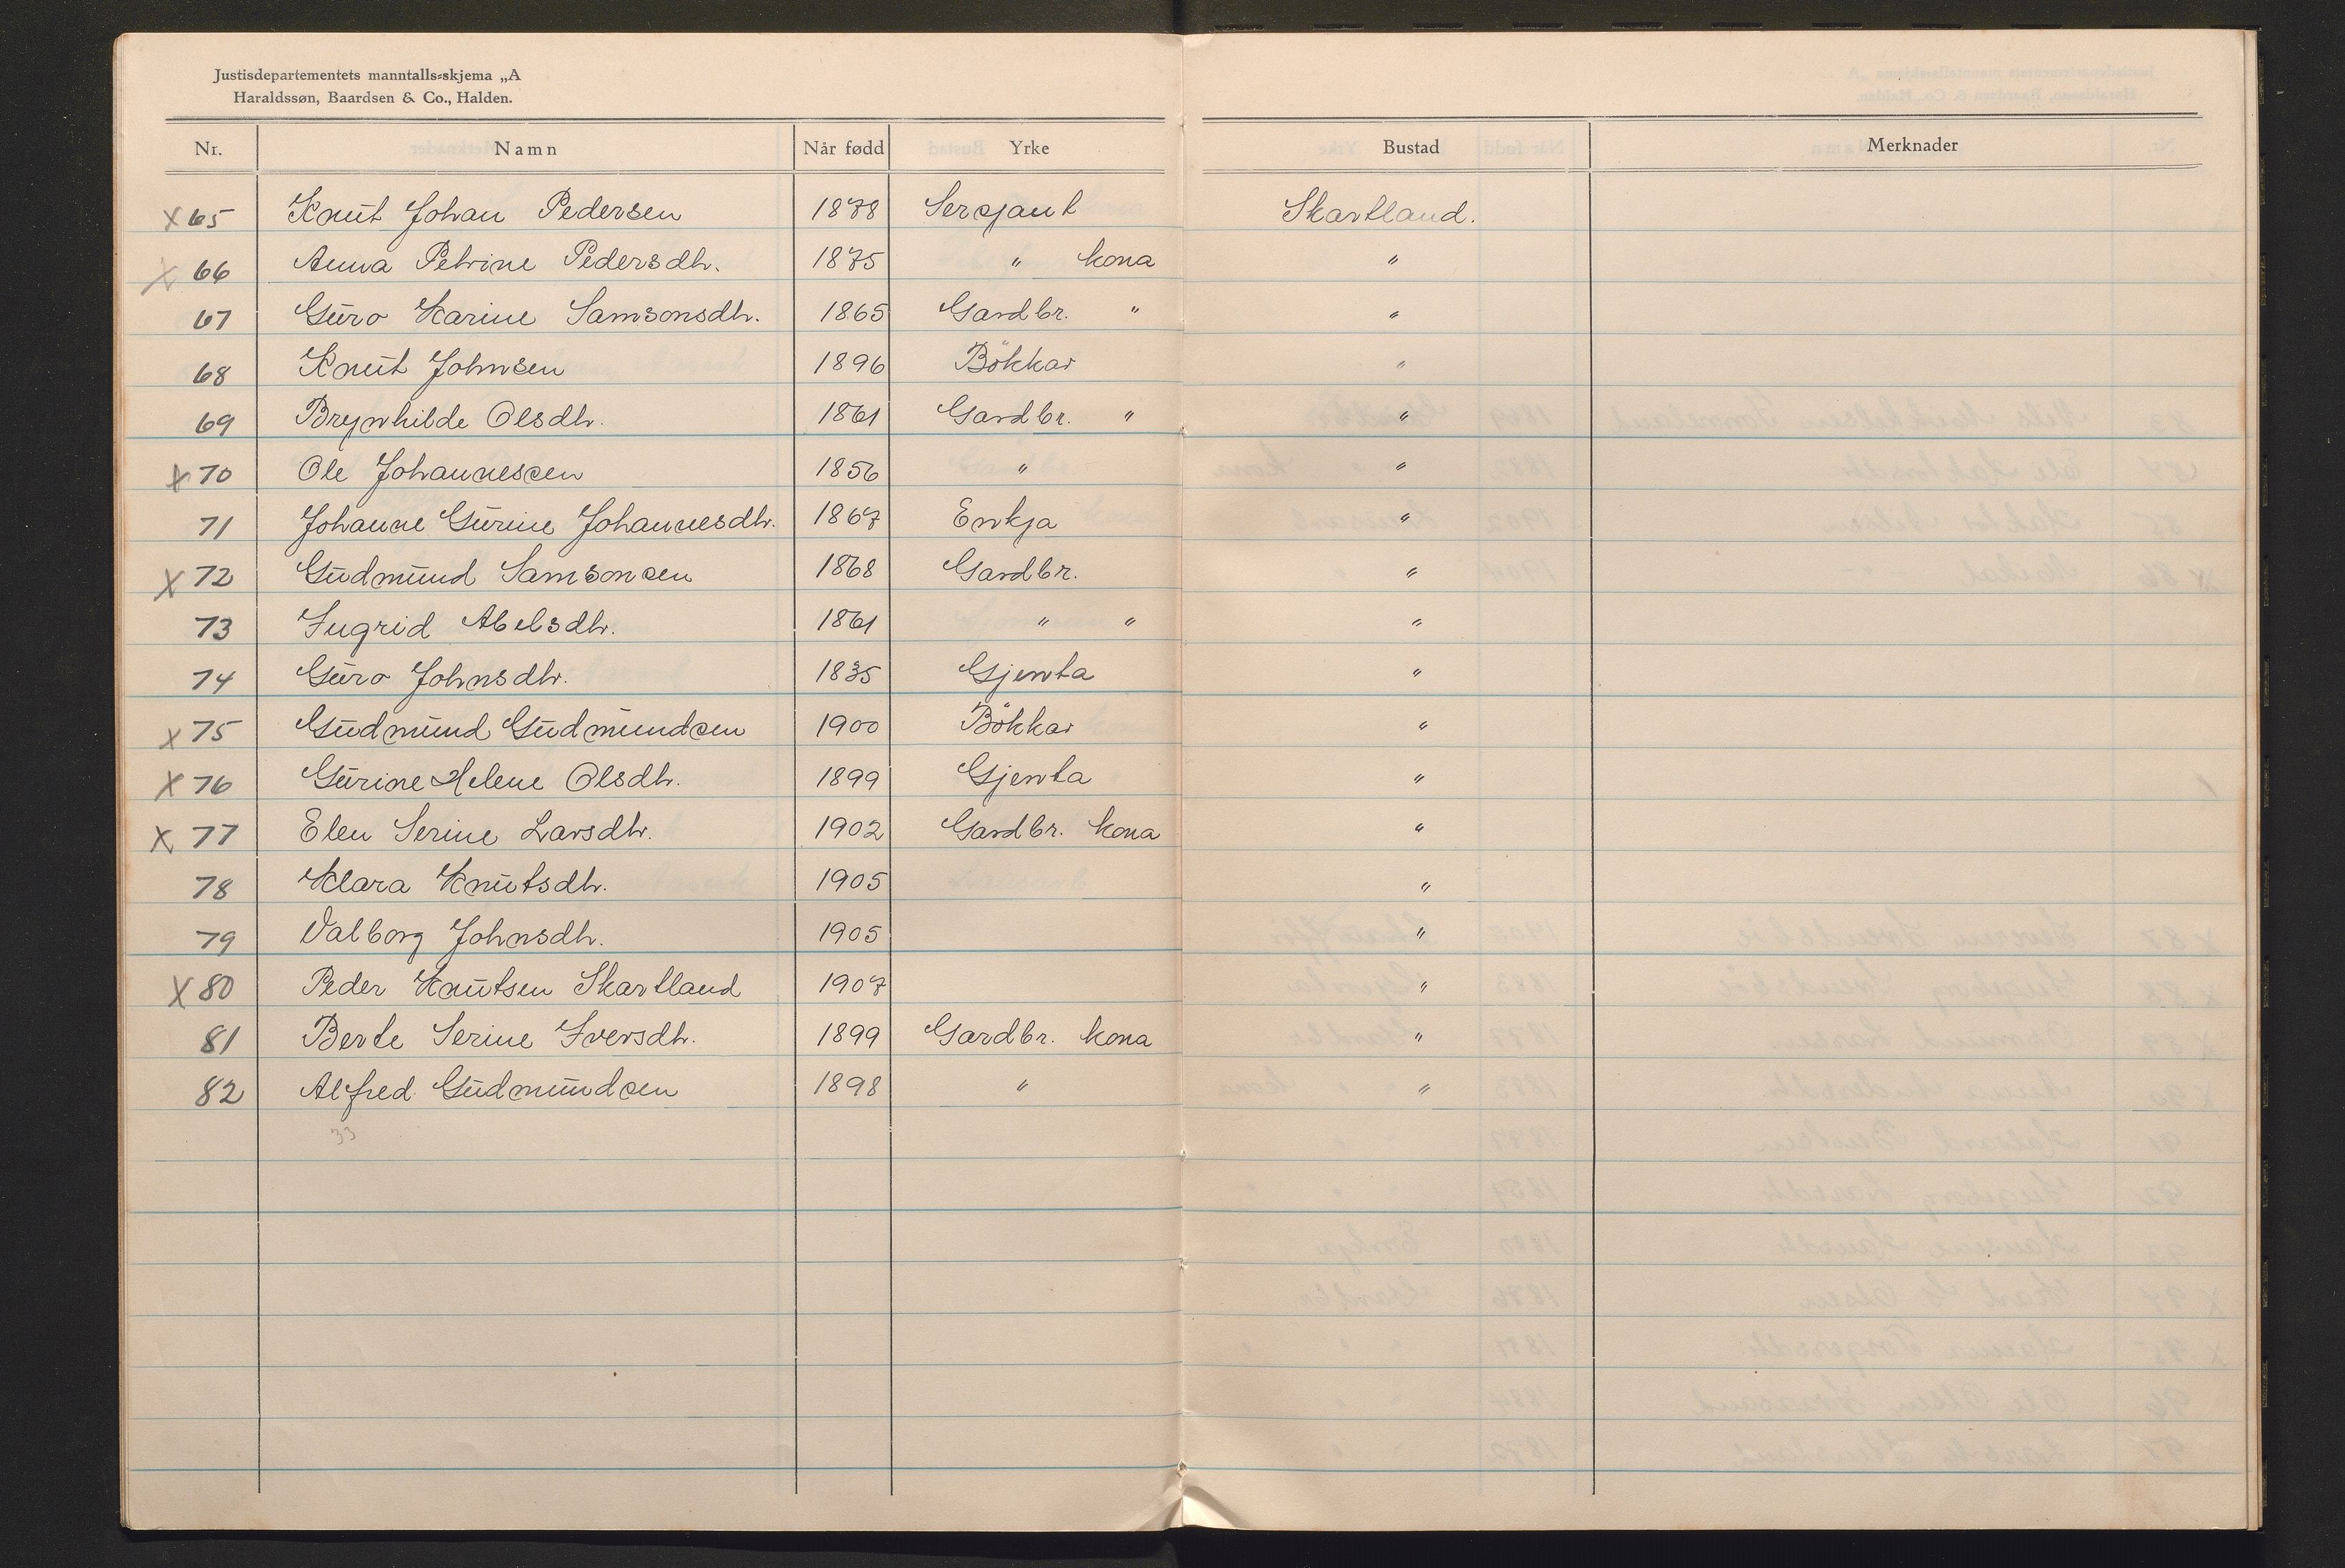 Justisdepartementets manntalls=skjema „A
Haraldssøn, Baardsen & Co., Halden.
Nr. Namn Når fødd Yrke Bustad Merknader
X 65 Knut Johan Pedersen 1878 Sersjant Skartland.
X 66 Anna Petrine Pedersdtr. 1875 " kona "
67 Guro Karine Samsonsdtr. 1865 Gardbr. " "
68 Knut Johnsen 1896 Bökkar "
69 Brynhilde Olsdtr. 1861 Gardbr. " "
X 70 Ole Johannessen 1856 " "
71 Johanne Gurine Johannesdtr. 1867 Enkja "
X 72 Gudmund Samsonsen 1868 Gardbr. "
73 Ingrid Abelsdtr. 1861 " " "
74 Guro Johnsdtr. 1835 Gjenta "
X 75 Gudmund Gudmundsen 1900 Bökkar "
X 76 Gurine Helene Olsdtr. 1899 Gjenta "
X 77 Elen Serine Larsdtr. 1902 Gardbr. kona "
78 Klara Knutsdtr. 1905 "
79 Valborg Johnsdtr. 1905 "
X 80 Peder Knutsen Skartland 1907 "
81 Berte Serine Iversdtr. 1899 Gardbr. kona "
82 Alfred Gudmundsen 1898 " "
33